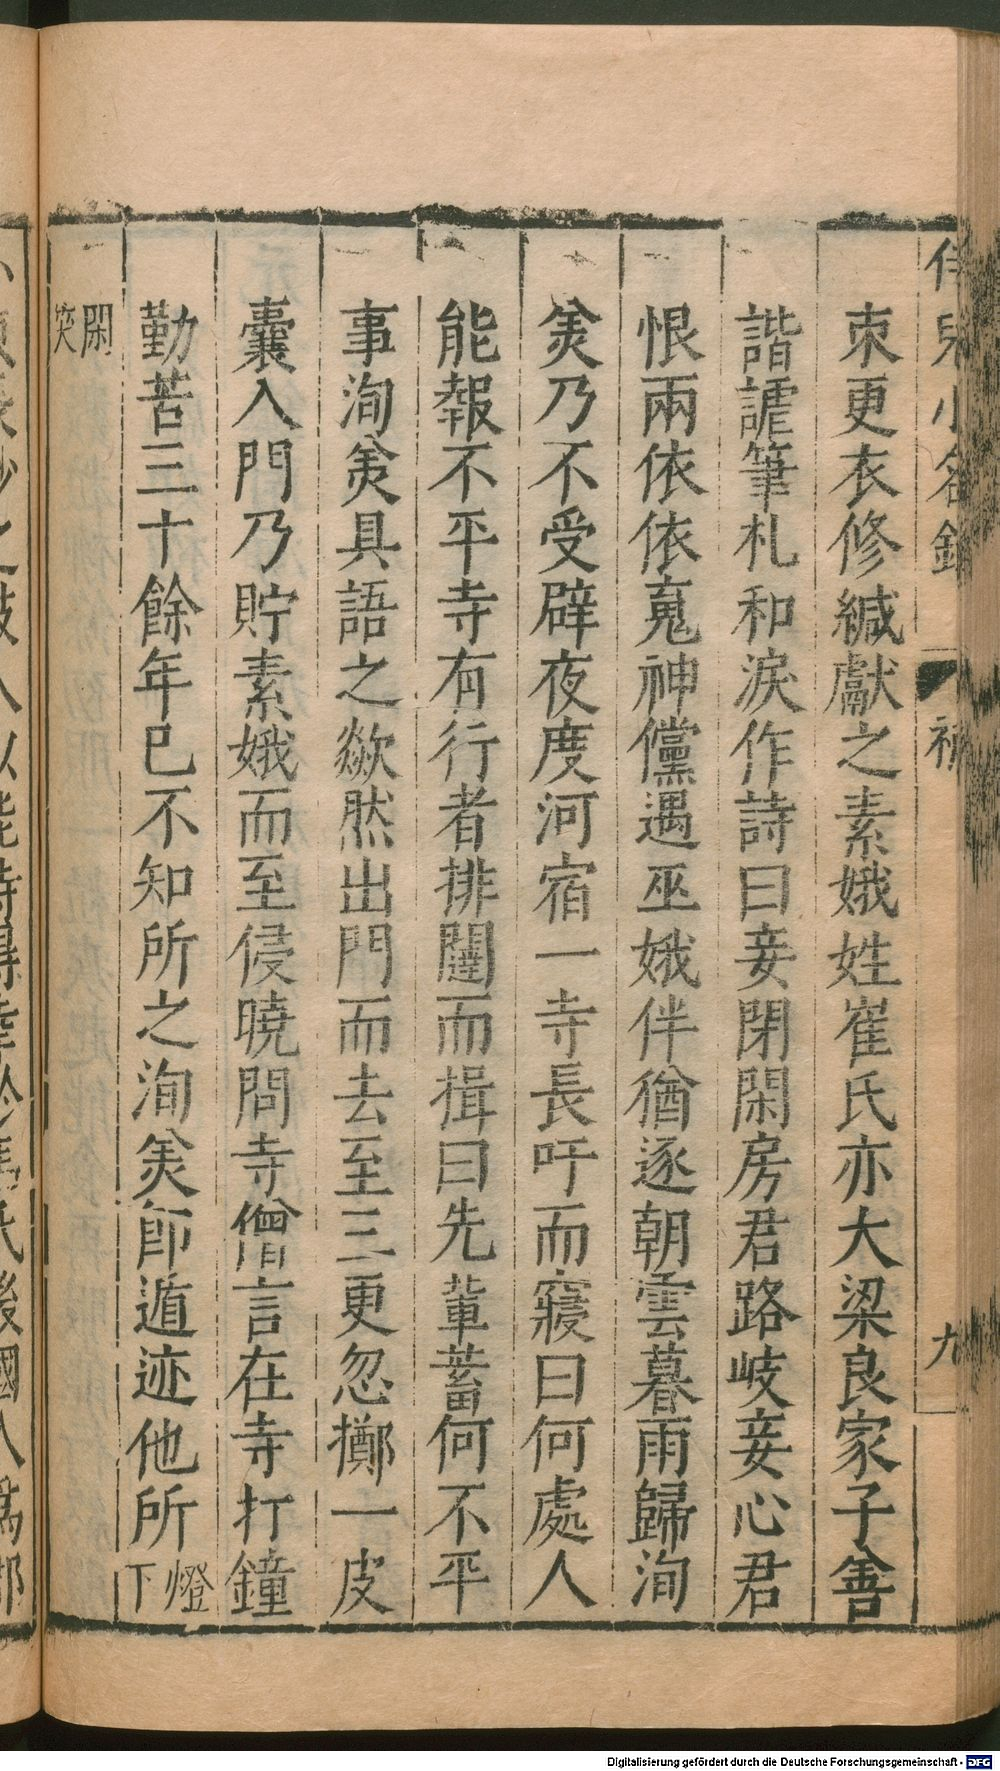 侍兒小名錄 補 九
朿更衣修緘獻之素娥姓崔氏亦大梁良家子善
諧謔筆札和淚作詩曰妾閉閑房君路岐妾心君
恨兩依依䰟神儻遇巫娥伴猶逐朝雲暮雨歸洵
羙乃不受辟夜度河宿一寺長吁而寢曰何處人
能報不平寺有行者排闥而揖曰先輩蓄何不平
事洵羙具語之歘然出門而去至三更忽擲一皮
囊入門乃貯素娥而至侵曉問寺僧言在寺打鐘
勤苦三十餘年已不知所之洵羙即遁迹他所 燈下
閑笑
Digitalisierung gefördert durch die Deutsche Forschungsgemeinschaft - DFG